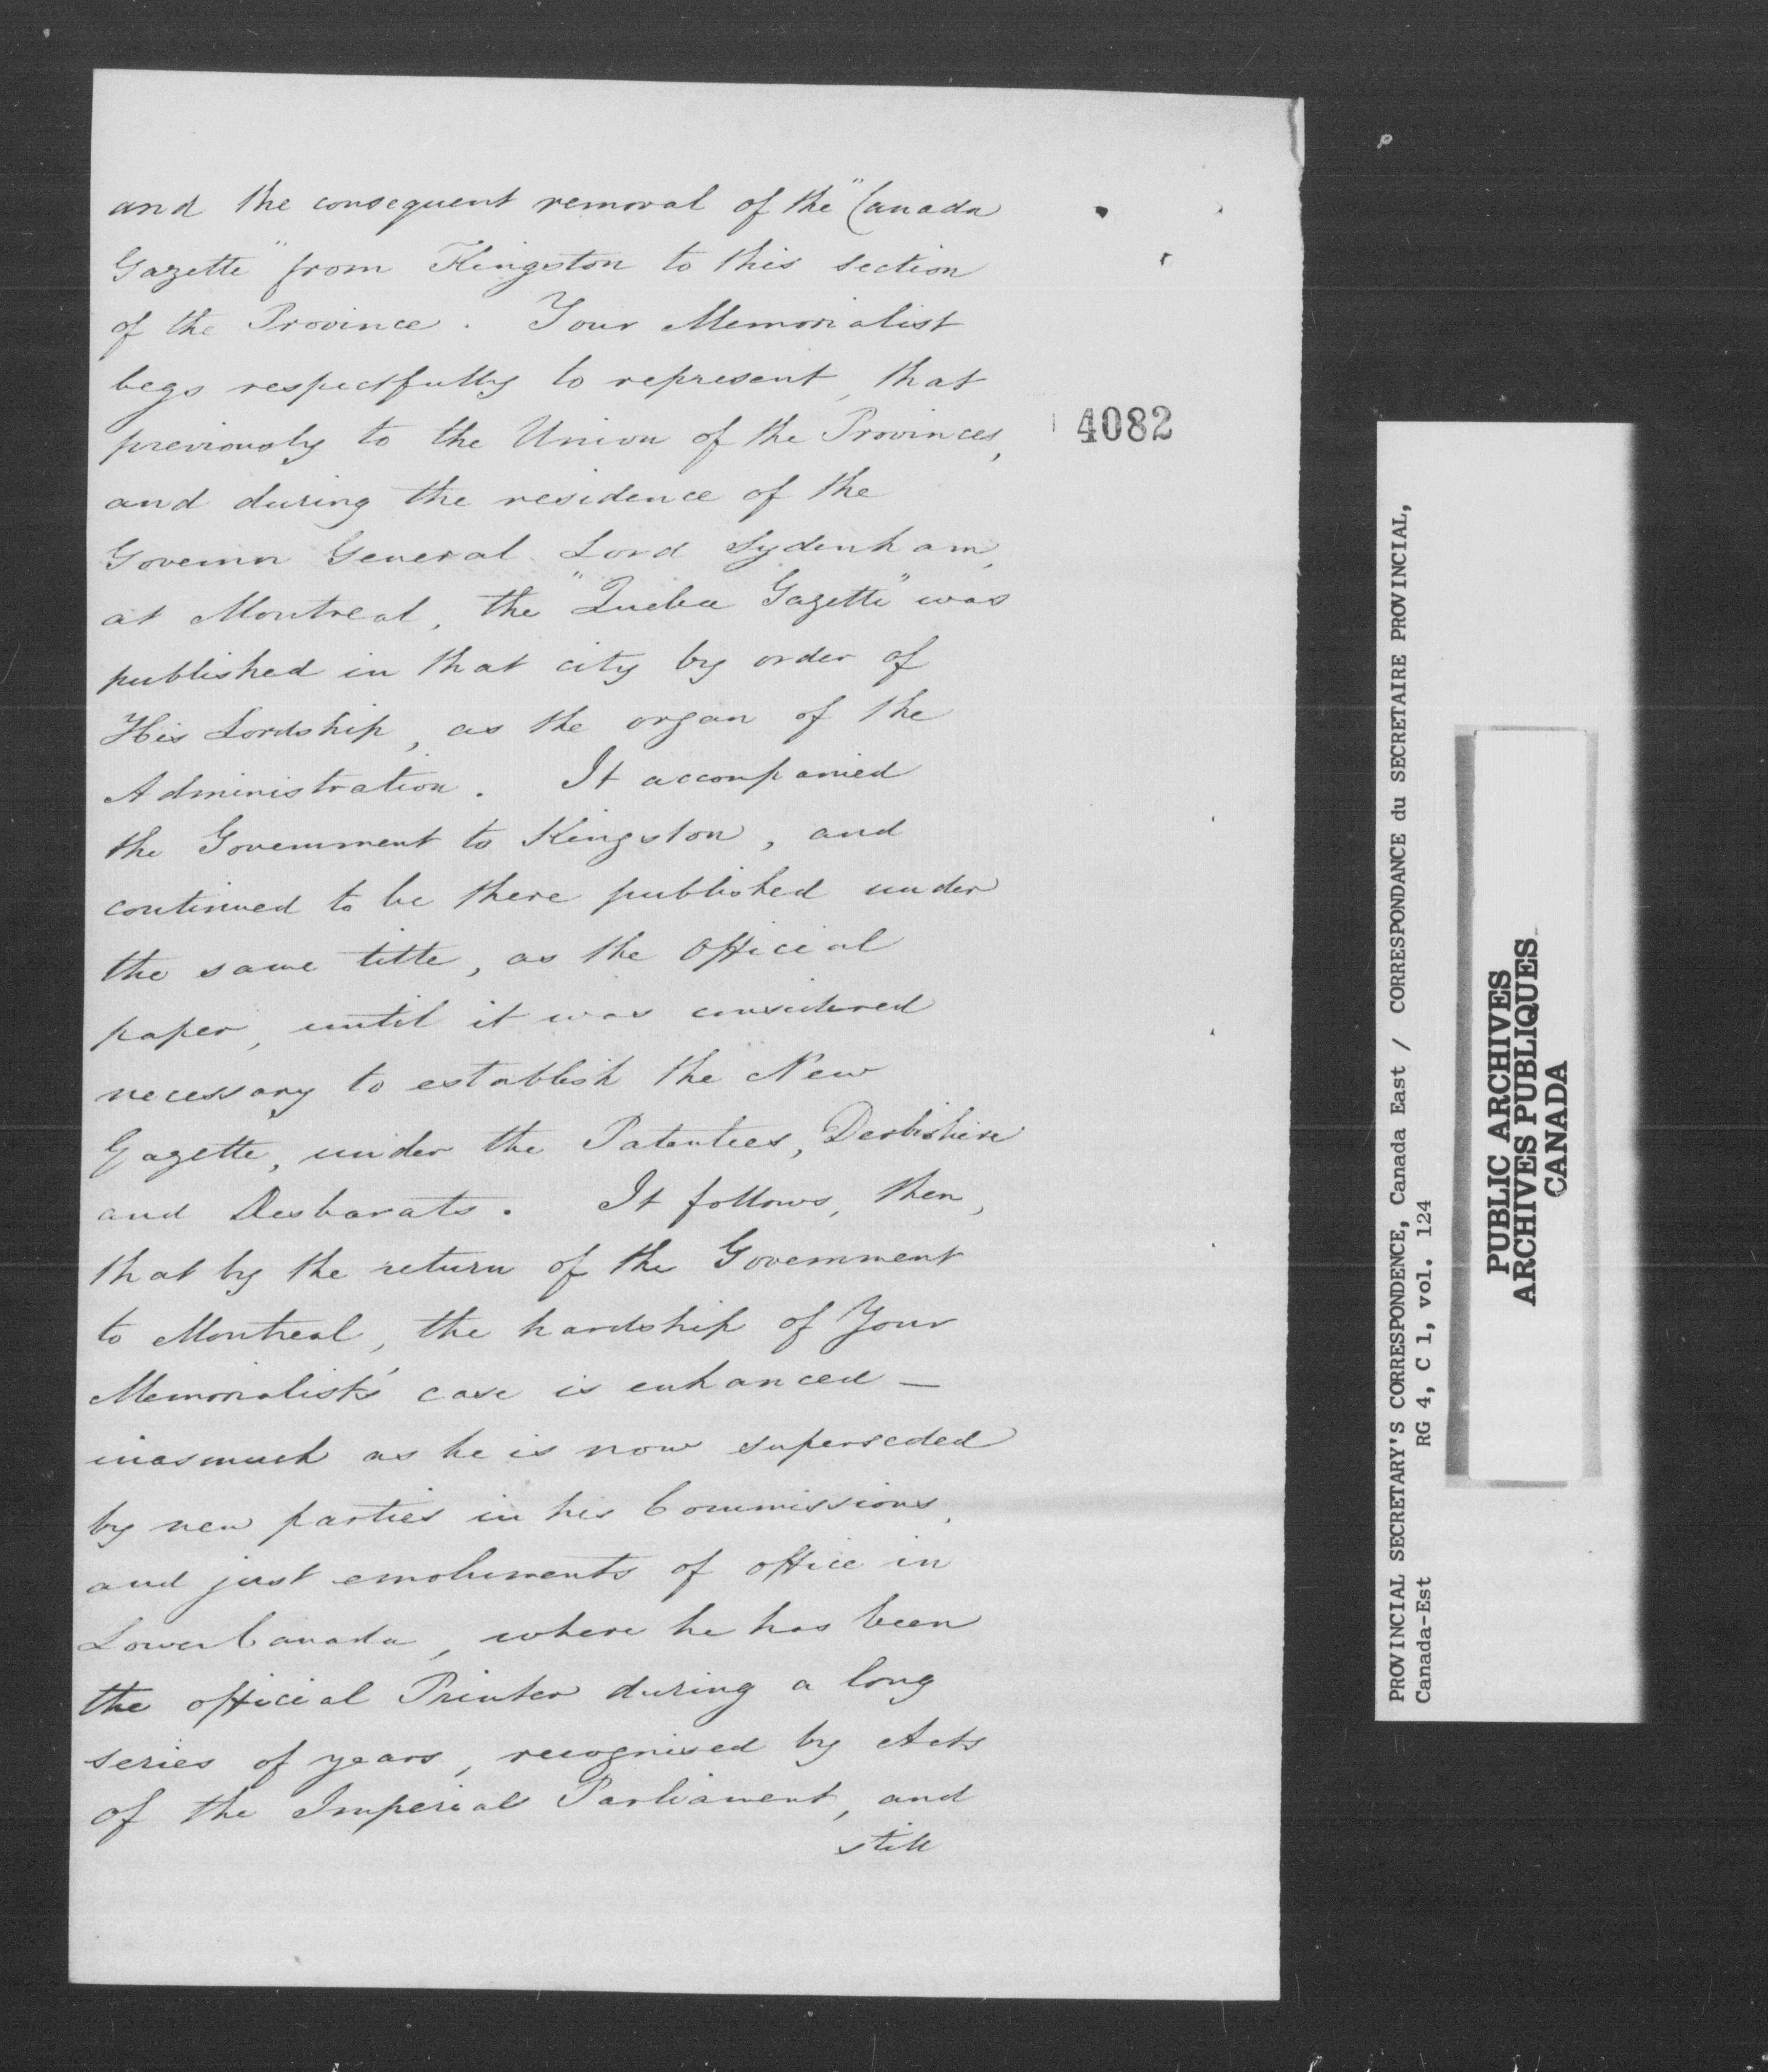 and the consequent removal of the "Canada
Gazette" from Kingston to this section
of the Province. Your Memorialist
begs respectfully to represent, that
previously to the Union of the Provinces,
and during the residence of the
Governor General Lord Sydenham,
at Montreal, the "Quebec Gazette" was
published in that city by order of
His Lordship, as the organ of the
Administration. It accompanied
the Government to Kingston, and
continued to be there published under
the same title, as the Official
paper, until it was considered
necessary to establish the New
Gazette, under the Patentees, Derbishire
and Desbarats. It follows, then,
that by the return of the Government
to Montreal, the hardship of Your
Memorialist's case is enhanced —
inasmuch as he is now superseded
by new parties in his Commissions,
and just emoluments of office in
Lower Canada, where he has been
the official Printer during a long
series of years, recognised by Acts
of the Imperial Parliament, and
still
4082
PROVINCIAL SECRETARY'S CORRESPONDENCE, Canada East / CORRESPONDANCE du SECRETAIRE PROVINCIAL,
Canada-Est RG 4, C 1, vol. 124
PUBLIC ARCHIVES
ARCHIVES PUBLIQUES
CANADA